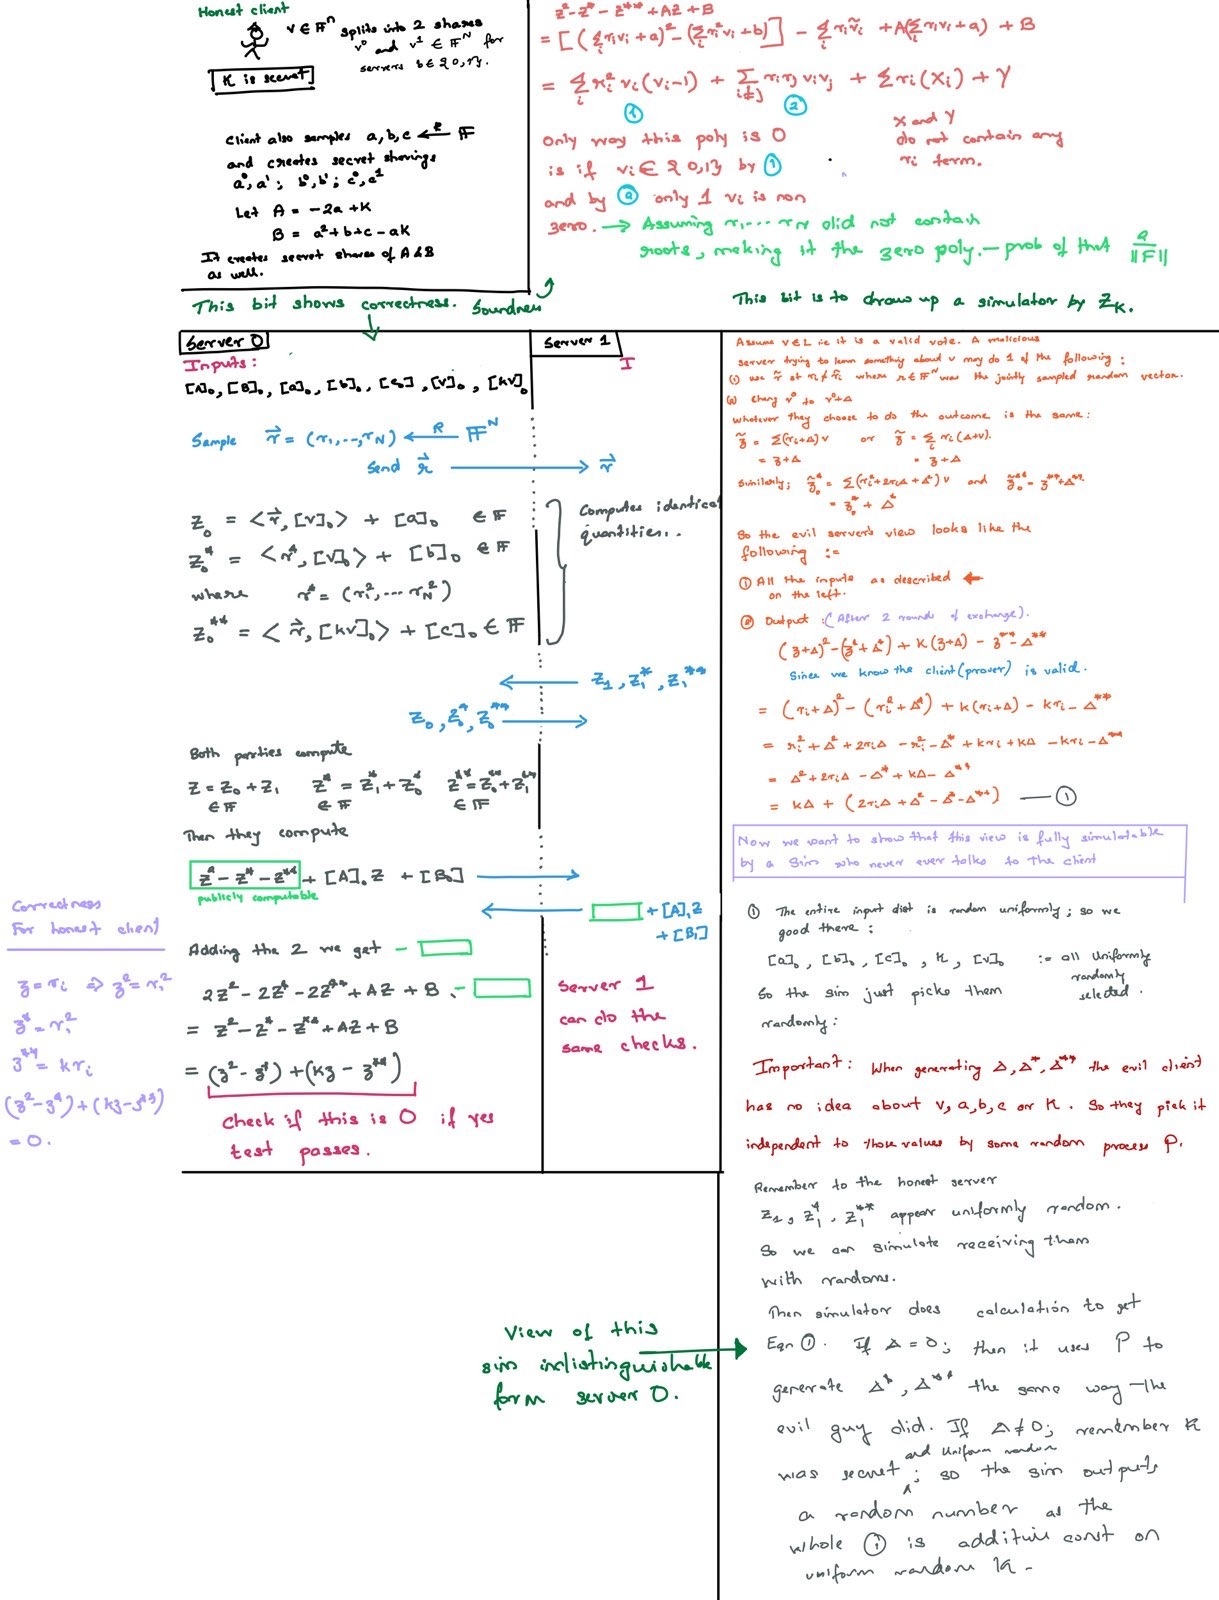 Honest client
v ∈ Fⁿ splits into 2 shares
v⁰ and v¹ ∈ Fᴺ for
servers b ∈ {0,1}.
K is secret
Client also samples a, b, c ←R F
and creates secret sharings
a⁰, a¹ ; b⁰, b¹ ; c⁰, c¹
Let A = -2a + K
B = a² + b + c - aK
It creates secret shares of A & B
as well.
z² - z* - z** + AZ + B
= [(Σ rᵢvᵢ + a)² - (Σ rᵢ²vᵢ + b)] - Σ rᵢṽᵢ + A(Σ rᵢvᵢ + a) + B
= Σ rᵢ² vᵢ(vᵢ-1) + Σ i≠j rᵢ rⱼ vᵢ vⱼ + Σ rᵢ(Xᵢ) + Y
① ②
Only way this poly is 0
is if vᵢ ∈ {0,1} by ①
and by ② only 1 vᵢ is non
zero.
X and Y
do not contain any
rᵢ term.
→ Assuming r₁ ... r_N did not contain
roots, making it the zero poly. — prob of that 2/||F||
This bit shows correctness. Soundness
This bit is to draw up a simulator by ZK.
Server 0
Server 1
Inputs:
I
[A]₀, [B]₀, [a]₀, [b]₀, [c]₀, [v]₀, [kv]₀
Sample r⃗ = (r₁, .., r_N) ←R Fᴺ
Send r⃗ → r⃗
Z₀ = <r⃗, [v]₀> + [a]₀ ∈ F
Z₀* = <r*, [v]₀> + [b]₀ ∈ F
where r* = (r₁², ... r_N²)
Z₀** = <r⃗, [kv]₀> + [c]₀ ∈ F
Computes identical
quantities..
Z₁, Z₁*, Z₁**
Z₀, Z₀*, Z₀**
Both parties compute
Z = Z₀ + Z₁ Z* = Z₁* + Z₀* Z** = Z₀** + Z₁**
∈ F ∈ F ∈ F
Then they compute
z² - z* - z** + [A]₀ Z + [B₀]
publicly computable
+ [A]₁ Z
+ [B₁]
Adding the 2 we get -
2z² - 2z* - 2z** + AZ + B -
= z² - z* - z** + AZ + B
= (z² - z*) + (kz - z**)
Check if this is 0 if yes
test passes.
Server 1
can do the
same checks.
Correctness
For honest client
z = rᵢ ⇒ z² = rᵢ²
z* = rᵢ²
z** = krᵢ
(z² - z*) + (kz - z**)
= 0.
Assume v ∈ L ie it is a valid vote. A malicious
server trying to learn something about v may do 1 of the following :
(1) use r̃ st r ≠ r̃ᵢ where r ∈ Fᴺ was the jointly sampled random vector.
(2) chang v⁰ to v⁰ + Δ
Whatever they choose to do the outcome is the same:
z̃ = Σ(rᵢ + Δ) v or z̃ = Σ rᵢ (Δ + v).
= z + Δ = z + Δ
Similarly; z̃₀* = Σ(rᵢ² + 2rᵢΔ + Δ²) v and z̃₀** = z** + Δ**
= z₀* + Δ*
So the evil server's view looks like the
following :=
① All the inputs as described ←
on the left.
② Output : (After 2 rounds of exchange).
(z + Δ)² - (z* + Δ*) + K(z + Δ) - z** - Δ**
Since we know the client (prover) is valid.
= (rᵢ + Δ)² - (rᵢ² + Δ*) + k(rᵢ + Δ) - krᵢ - Δ**
= rᵢ² + Δ² + 2rᵢΔ - rᵢ² - Δ* + krᵢ + kΔ - krᵢ - Δ**
= Δ² + 2rᵢΔ - Δ* + kΔ - Δ**
= kΔ + (2rᵢΔ + Δ² - Δ* - Δ**) — ①
Now we want to show that this view is fully simulatable
by a Sim who never ever talks to the client
① The entire input dist is random uniformly ; so we
good there :
[a]₀, [b]₀, [c]₀, k, [v]₀ := all uniformly
randomly
selected.
So the sim just picks them
randomly :
Important : When generating Δ, Δ*, Δ** the evil client
has no idea about v, a, b, c or K. So they pick it
independent to those values by some random process P.
Remember to the honest server
Z₁, Z₁*, Z₁** appear uniformly random.
So we can simulate receiving them
with randoms.
Then simulator does calculation to get
Eqn ①. If Δ = 0; then it uses P to
generate Δ*, Δ** the same way the
evil guy did. If Δ ≠ 0; remember K
and uniform random
was secret ; so the sim outputs
a random number as the
whole ① is additive const on
uniform random K.
View of this
sim indistinguishable
form server 0.